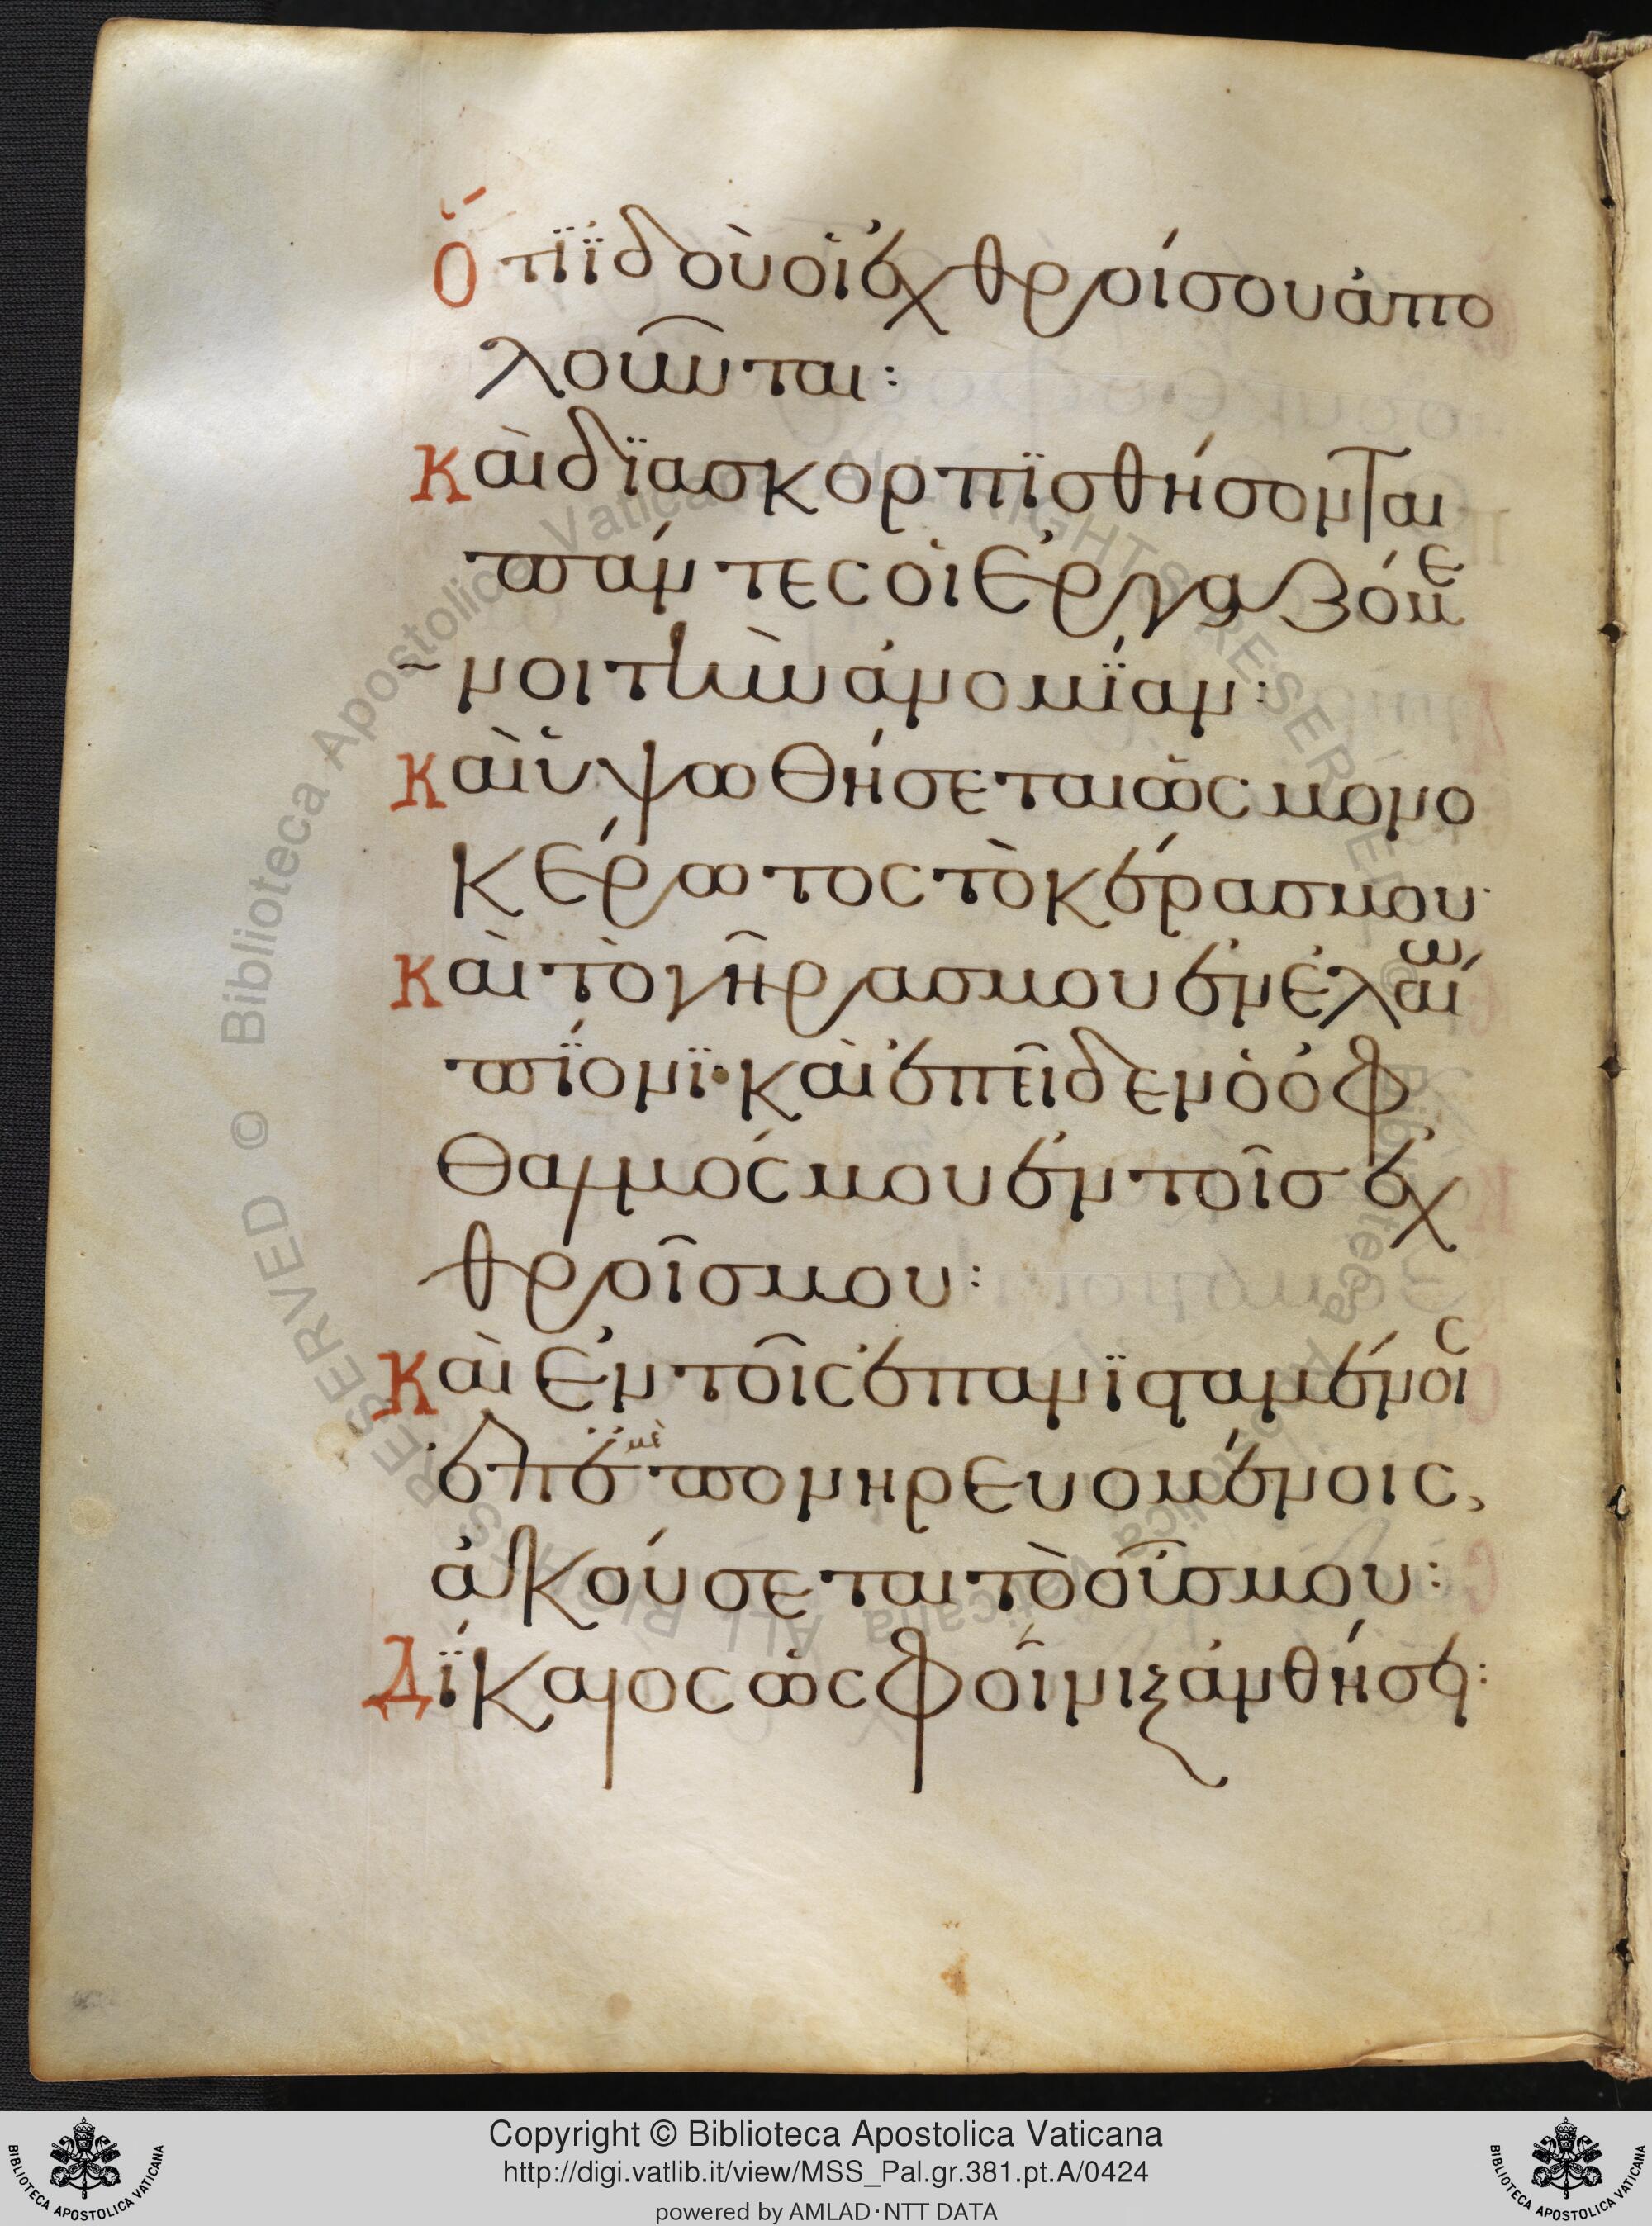 Ὅτι ἰδοὺ οἱ ἐχθροί σου ἀπο
λοῦνται:
Καὶ διασκορπισθήσονται
πάντες οἱ ἐργαζόμε
νοι τὴν ἀνομίαν:
Καὶ ὑψωθήσεται ὡς μονο
κέρωτος τὸ κέρας μου·
Καὶ τὸ γῆρας μου ἐν ἐλαίω
πίονι· καὶ ἐπεῖδεν ὁ ὀφ
θαλμός μου ἐν τοῖς ἐχ
θροῖς μου:
Καὶ ἐν τοῖς ἐπανισταμένοις
ἐπ' ἐμὲ πονηρευομένοις,
ἀκούσεται τὸ οὖς μου:
Δίκαιος ὡς φοῖνιξ ἀνθήσει:
© Biblioteca Apostolica Vaticana ALL RIGHTS RESERVED © Biblioteca Apostolica Vaticana ALL RIGHTS RESERVED
Copyright © Biblioteca Apostolica Vaticana
http://digi.vatlib.it/view/MSS_Pal.gr.381.pt.A/0424
powered by AMLAD·NTT DATA
BIBLIOTECA APOSTOLICA VATICANA
BIBLIOTECA APOSTOLICA VATICANA